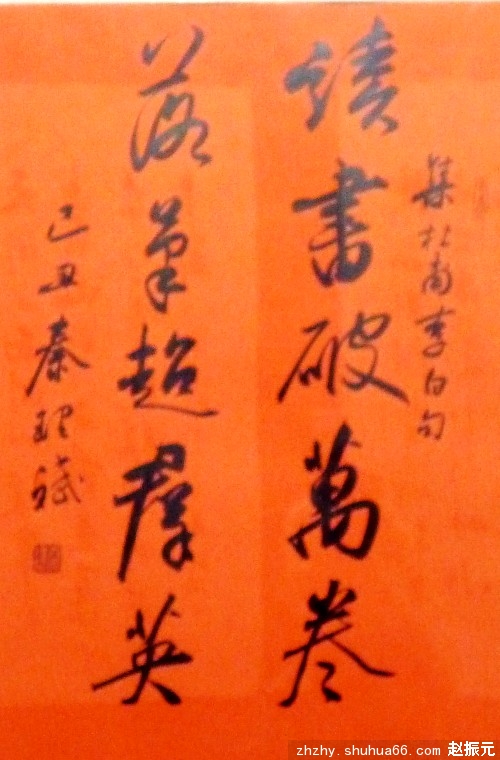 集杜甫李白句
讀書破萬卷
落筆超群英
己丑秦理斌
zhzhy.shuhua66.com 赵振元